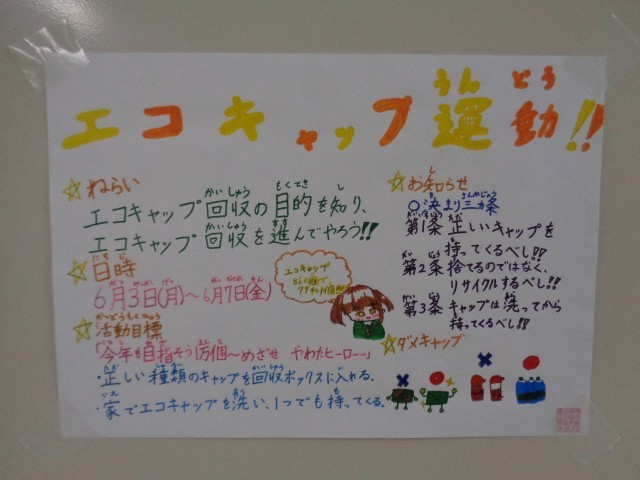 エコキャップ運動!!
うんどう
☆ねらい
エコキャップ回収の目的を知り、
かいしゅう もくてき し
エコキャップ回収を進んでやろう!!
かいしゅう すす
☆日時
にちじ
6月3日(月)~6月7日(金)
☆活動目標
かつどうもくひょう
「今年も目指そう1万個~めざせ やわたヒーロー~」
・正しい種類のキャップを回収ボックスに入れる。
・家でエコキャップを洗い、1つでも持ってくる。
エコキャップ
☆お知らせ
○決まり三カ条
第1条 正しいキャップを
持ってくるべし!!
第2条 捨てるのではなく、
リサイクルするべし!!
第3条 キャップは洗ってから
持ってくるべし!!
☆ダメキャップ